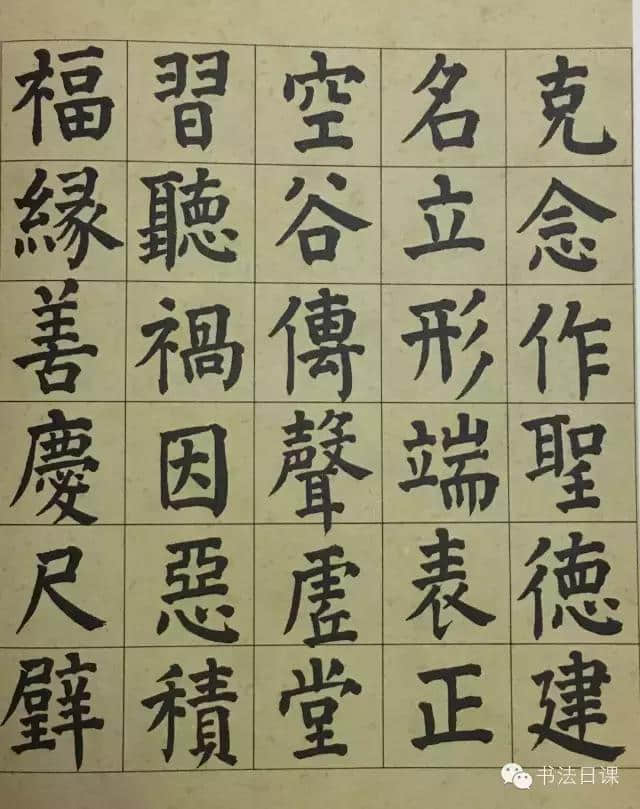 克念作聖德建
名立形端表正
空谷傳聲虛堂
習聽禍因惡積
福緣善慶尺璧
书法日课